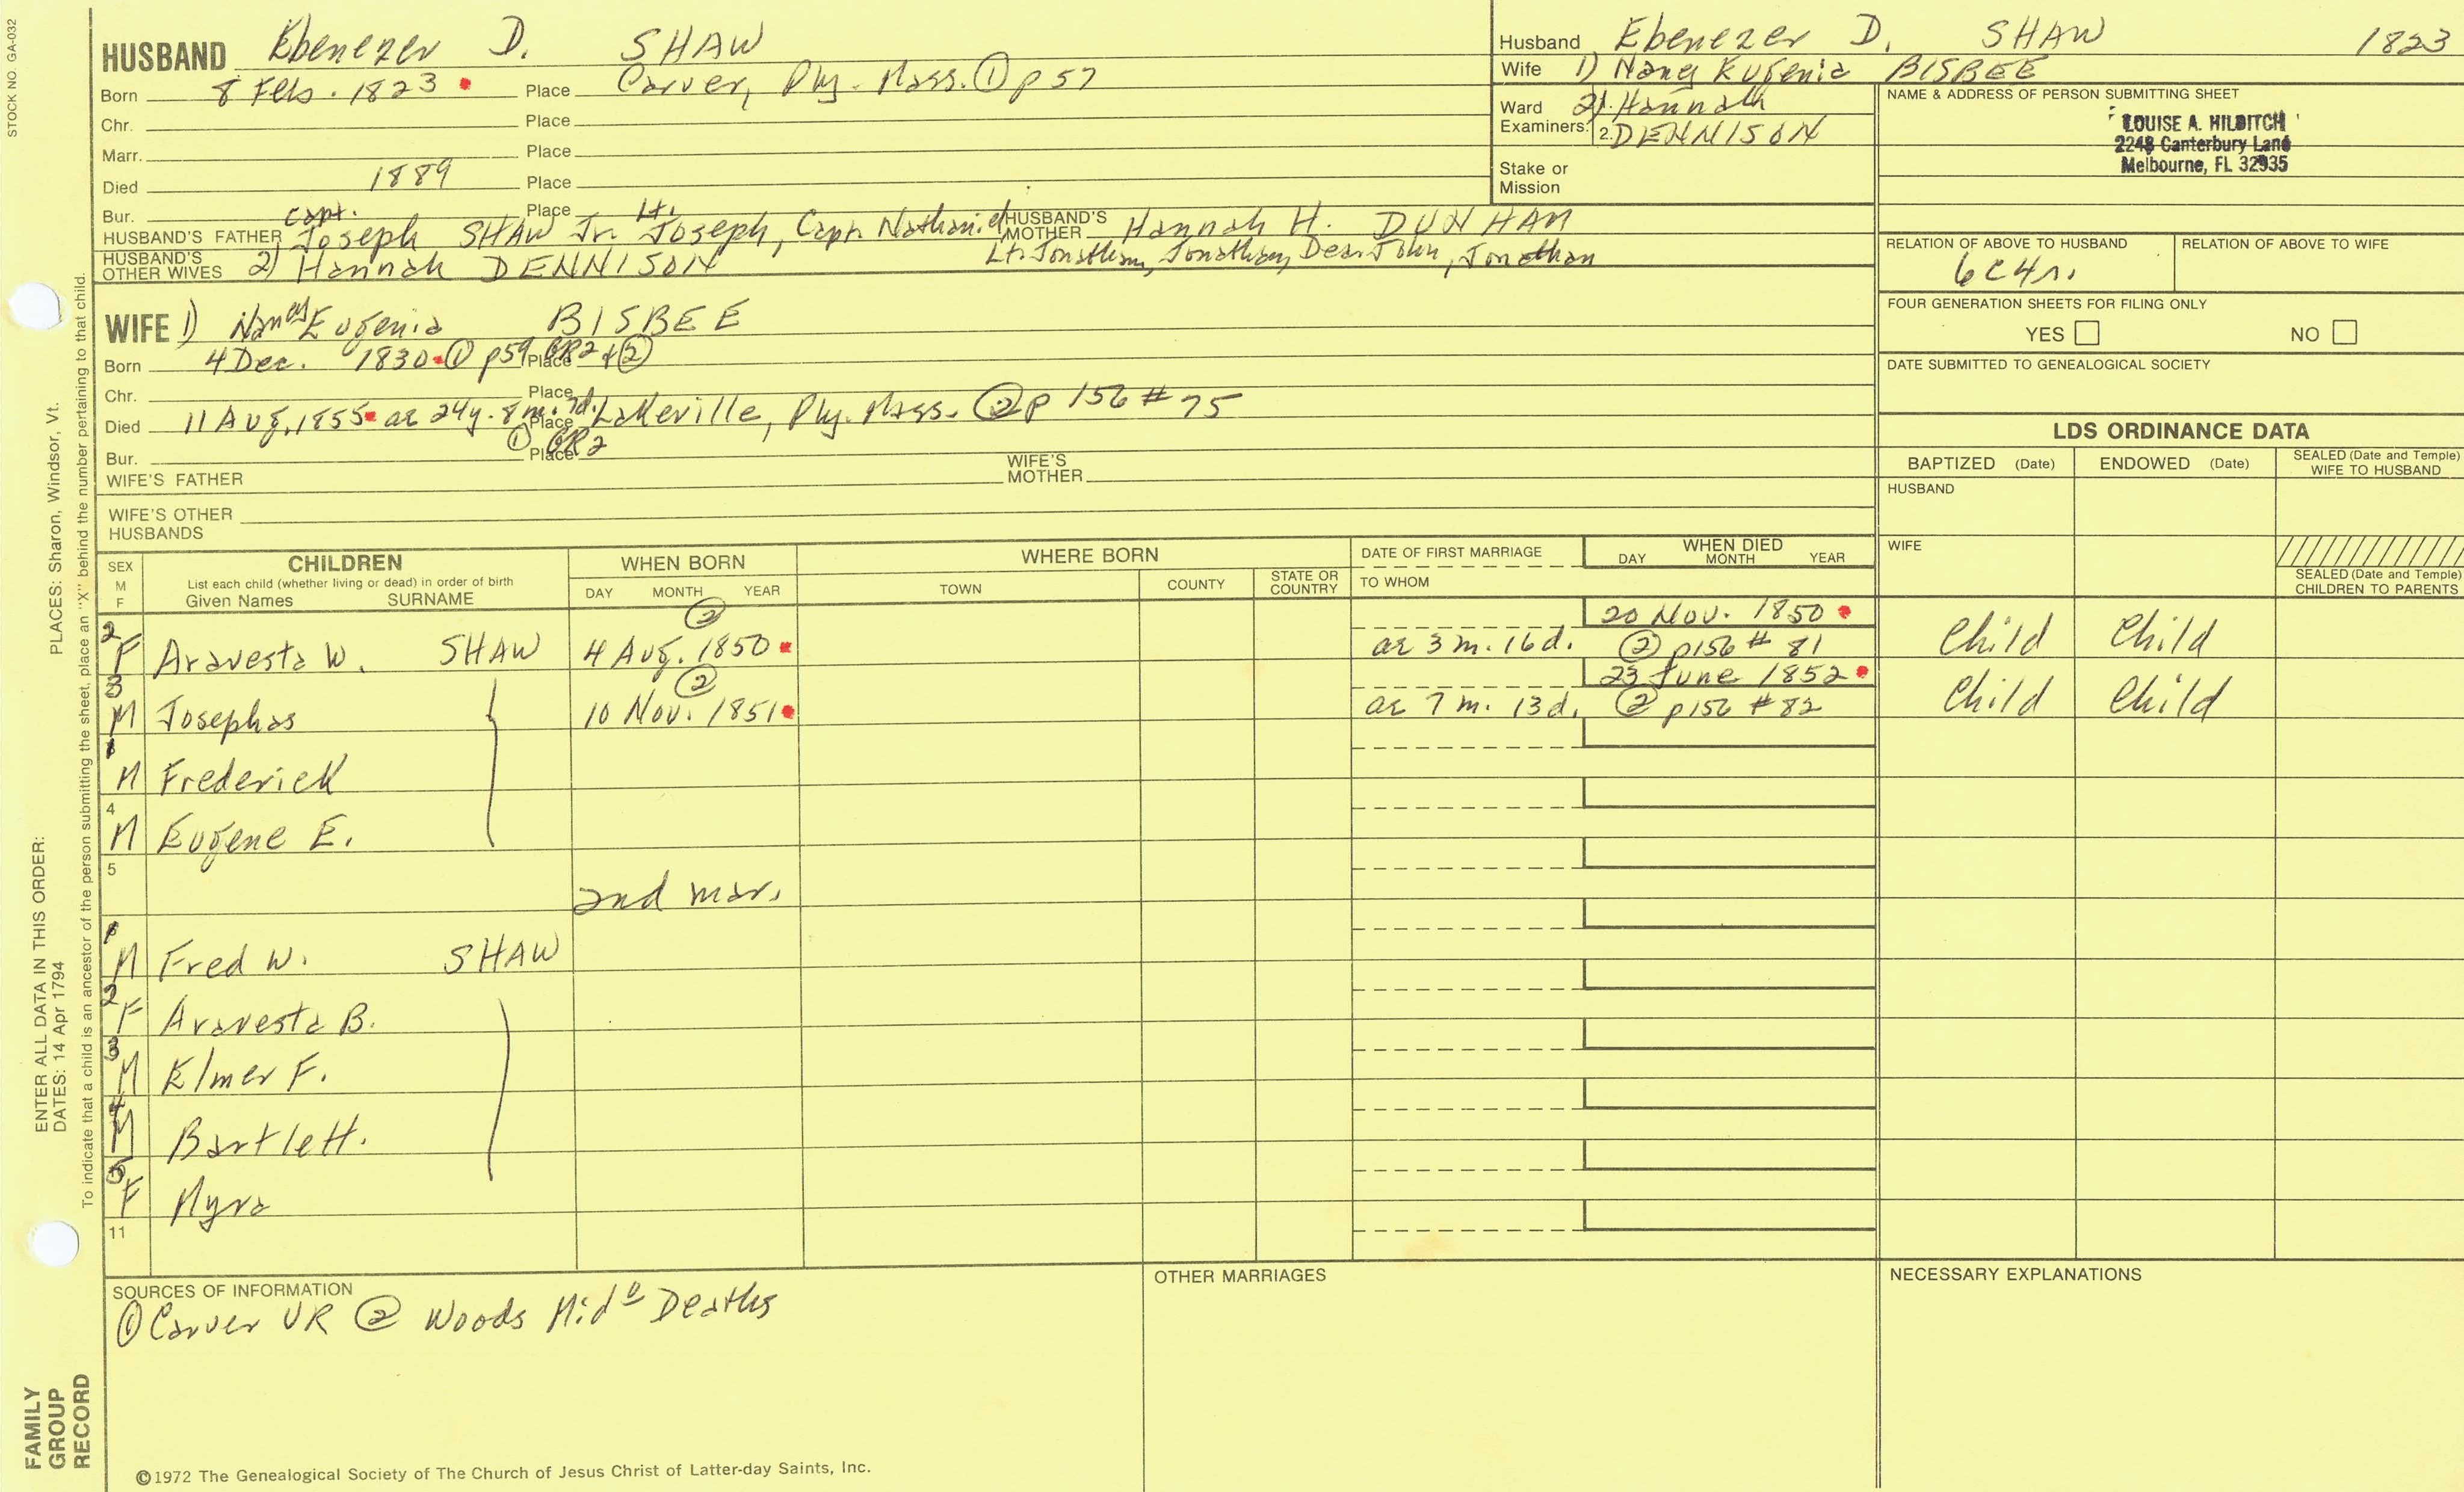 STOCK NO. GA-032
HUSBAND Ebenezer D. SHAW
Born 8 Feb. 1823 Place Carver, Ply. Mass. ① p 57
Chr. Place
Marr. Place
Died 1889 Place
Bur. Place
HUSBAND'S FATHER Capt. Joseph SHAW Jr. Lt. Joseph, Capt. Nathaniel HUSBAND'S MOTHER Hannah H. DUNHAM
Lt. Jonathan, Jonathan, Dea. John, Jonathan
HUSBAND'S OTHER WIVES 2) Hannah DENNISON
Husband Ebenezer D. SHAW 1823
Wife 1) Nancy Eugenia BISBEE
Ward 2) Hannah
Examiners: 2. DENNISON
Stake or Mission
NAME & ADDRESS OF PERSON SUBMITTING SHEET
LOUISE A. HILDITCH
2248 Canterbury Lane
Melbourne, FL 32935
RELATION OF ABOVE TO HUSBAND RELATION OF ABOVE TO WIFE
6C4r.
FOUR GENERATION SHEETS FOR FILING ONLY
YES NO
DATE SUBMITTED TO GENEALOGICAL SOCIETY
WIFE 1) Nancy Eugenia BISBEE
Born 4 Dec. 1830 ① p59 Place GR2 & ②
Chr. Place
Died 11 Aug. 1855 ae 24y. 8m. 7d. Place Lakeville, Ply. Mass. ② p 156 # 75
① GR2
Bur. Place
WIFE'S FATHER WIFE'S MOTHER
WIFE'S OTHER HUSBANDS
LDS ORDINANCE DATA
BAPTIZED (Date) ENDOWED (Date) SEALED (Date and Temple) WIFE TO HUSBAND
HUSBAND
WIFE
SEALED (Date and Temple) CHILDREN TO PARENTS
SEX M F CHILDREN WHEN BORN WHERE BORN DATE OF FIRST MARRIAGE WHEN DIED
List each child (whether living or dead) in order of birth
Given Names SURNAME DAY MONTH YEAR TOWN COUNTY STATE OR COUNTRY TO WHOM DAY MONTH YEAR
② 20 Nov. 1850
2 F Aravesta W. SHAW 4 Aug. 1850 ae 3 m. 16 d. ② p156 # 81 Child Child
② 23 June 1852
3 M Josephas 10 Nov. 1851 ae 7 m. 13d. ② p156 # 82 Child Child
1 M Frederick
4 M Eugene E.
5
2nd mar.
1 M Fred W. SHAW
2 F Aravesta B.
3 M Elmer F.
4 M Bartlett.
5 F Myra
11
SOURCES OF INFORMATION
① Carver VR ② Woods Mid° Deaths
OTHER MARRIAGES
NECESSARY EXPLANATIONS
©1972 The Genealogical Society of The Church of Jesus Christ of Latter-day Saints, Inc.
ENTER ALL DATA IN THIS ORDER:
DATES: 14 Apr 1794
PLACES: Sharon, Windsor, Vt.
To indicate that a child is an ancestor of the person submitting the sheet, place an "X" behind the number pertaining to that child.
FAMILY
GROUP
RECORD